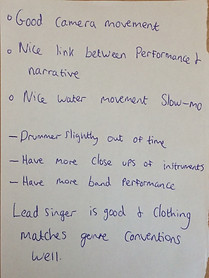 o Good camera movement
o Nice link between Performance &
narrative
o Nice water movement Slow-mo
– Drummer slightly out of time
– Have more close ups of instruments
– Have more band performance
Lead singer is good & clothing
matches genre conventions
well.